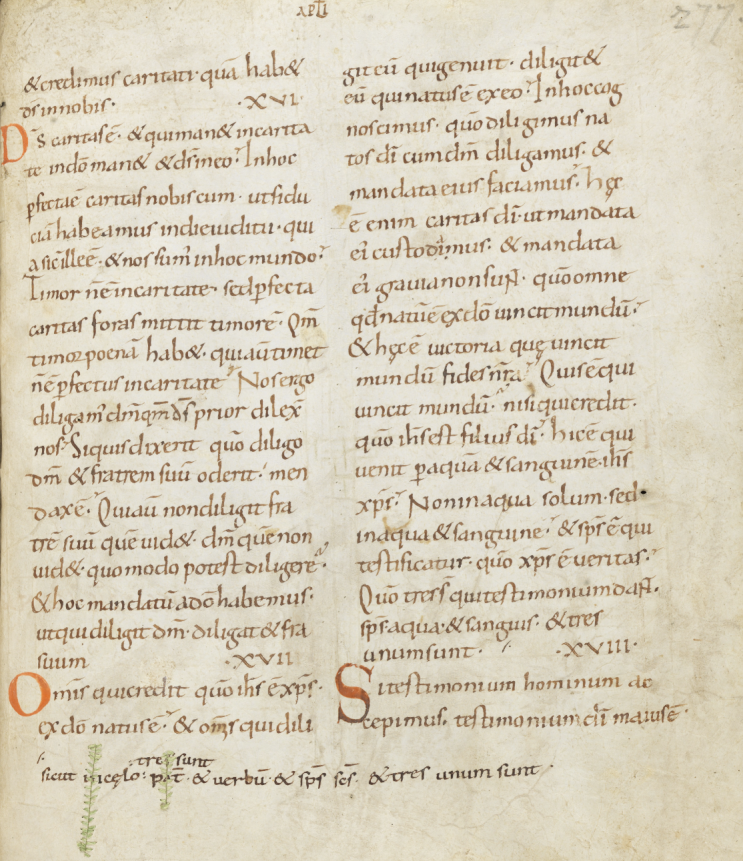 APLI
277
&credimus caritati quā hab&
ds innobis· ·XVI·
Ds caritasē· &quiman& incarita
te indō man& &ds̄ ineo· Inhoc
pfectaē caritas nobiscum· utfidu
ciā habeamus indieiudicii· qui
asic illeē· &nos sum̄ inhocmundo·
Timor nēincaritate· sed pfecta
caritas foras mittit timorē· Qm̄
timor poenā hab&· quiaūtimet
nēpfectus incaritate· Nosergo
diligam̄ dm̄ qm̄ ds̄ prior dilex̄
nos· Siquisdixerit quō diligo
dm̄ &fratrem suū oderit· men
daxē· Quiaū nondiligit fra
trē suū quē uid&· dm̄ quēnon
uid&· quomodo potest diligere·
&hoc mandatū adō habemus·
utqui diligit dm̄· diligat &fra
suum ·XVII
Omīs quicredit quō ih̄s ē xp̄s·
exdō natusē· &om̄s quidili
giteū quigenuit· diligit&
eū quinatusē exeo· Inhoccog
noscimus· quō diligimus na
tos dī cumdm̄ diligamus· &
mandata eius faciamus· hęc
ē enim caritas dī· ut mandata
ei custodimus· & mandata
ei grauia nonsuɴt· quō omne
qd̄natūē exdō uincit mundū·
&hęcē uictoria quę uincit
mundū fides nr̄a· Quisēqui
uincit mundū· nisi quicredit·
quō ih̄s est filius dī· hicē qui
uenit paquā &sanguinē· ih̄s
xp̄s· Noninaqua solum· sed·
inaqua &sanguine· &sps̄ ē qui
testificatur· quō xp̄s ē ueritas·
Quō tress quitestimoniumdaɴt·
sps̄· aqua· &sanguis· &tres
unumsunt· ·XVIII·
Sitestimonium hominum ac
cepimus· testimonium dī maiusē·
tres sunt
sicut incęlo· pat̄· & uerbū· & sps̄ scs̄· &tres unum sunt·